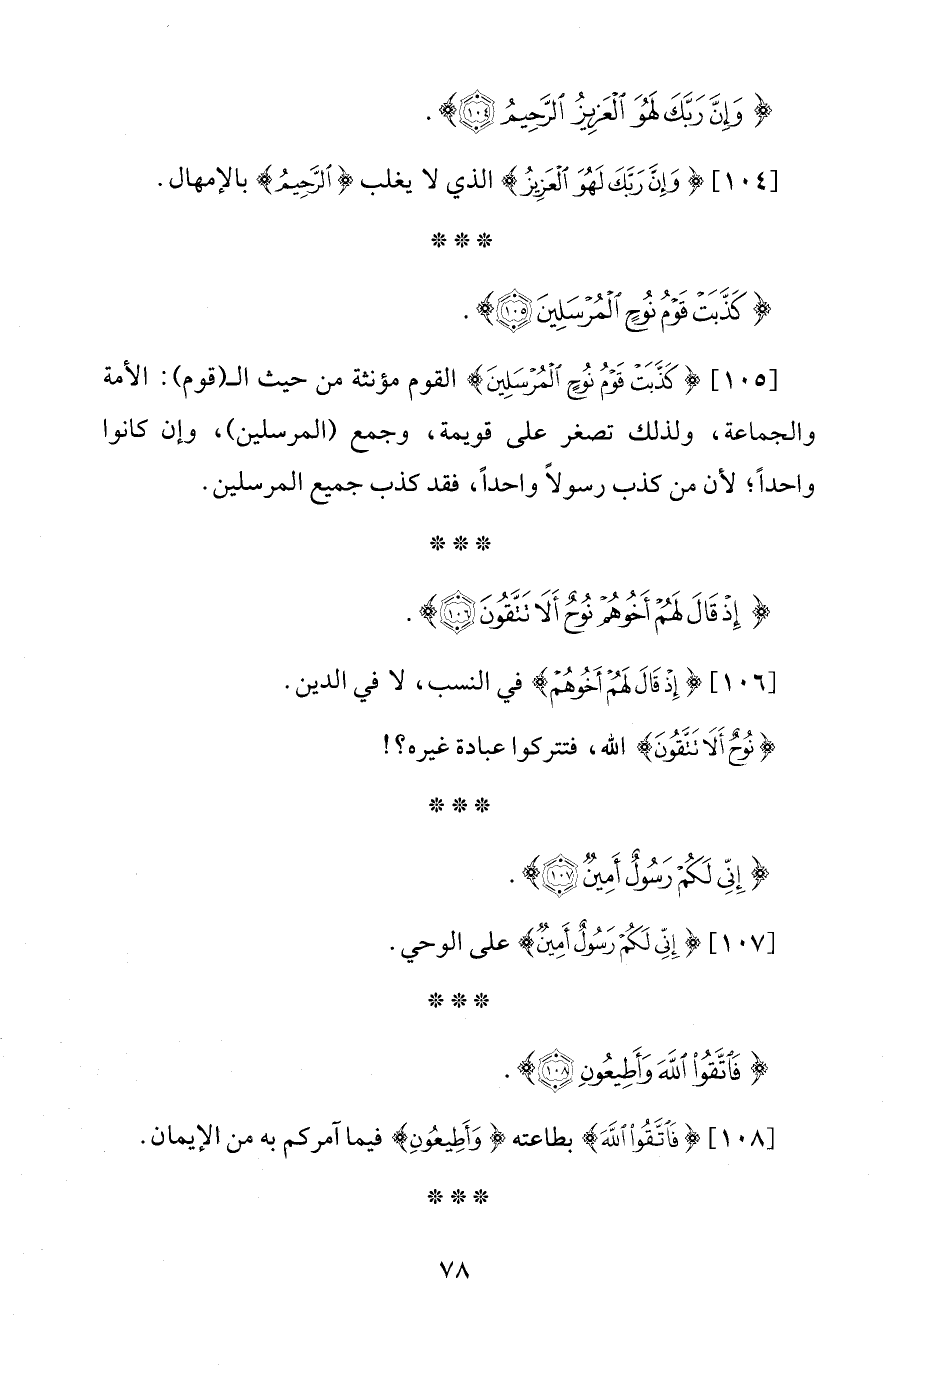 ﴿ وَإِنَّ رَبَّكَ لَهُوَ ٱلْعَزِيزُ ٱلرَّحِيمُ ١٠٤﴾ .
[١٠٤] ﴿ وَإِنَّ رَبَّكَ لَهُوَ ٱلْعَزِيزُ﴾ الذي لا يغلب ﴿ ٱلرَّحِيمُ﴾ بالإمهال .
* * *
﴿ كَذَّبَتْ قَوْمُ نُوحٍ ٱلْمُرْسَلِينَ ١٠٥﴾ .
[١٠٥] ﴿ كَذَّبَتْ قَوْمُ نُوحٍ ٱلْمُرْسَلِينَ﴾ القوم مؤنثة من حيث الـ(قوم): الأمة
والجماعة، ولذلك تصغر على قويمة، وجمع (المرسلين)، وإن كانوا
واحداً؛ لأن من كذب رسولاً واحداً، فقد كذب جميع المرسلين .
* * *
﴿ إِذْ قَالَ لَهُمْ أَخُوهُمْ نُوحٌ أَلَا تَتَّقُونَ ١٠٦﴾ .
[١٠٦] ﴿ إِذْ قَالَ لَهُمْ أَخُوهُمْ﴾ في النسب، لا في الدين .
﴿ نُوحٌ أَلَا تَتَّقُونَ﴾ الله، فتتركوا عبادة غيره؟!
* * *
﴿ إِنِّي لَكُمْ رَسُولٌ أَمِينٌ ١٠٧﴾ .
[١٠٧] ﴿ إِنِّي لَكُمْ رَسُولٌ أَمِينٌ﴾ على الوحي .
* * *
﴿ فَٱتَّقُوا۟ ٱللَّهَ وَأَطِيعُونِ ١٠٨﴾ .
[١٠٨] ﴿ فَٱتَّقُوا۟ ٱللَّهَ﴾ بطاعته ﴿ وَأَطِيعُونِ﴾ فيما آمركم به من الإيمان .
* * *
٧٨